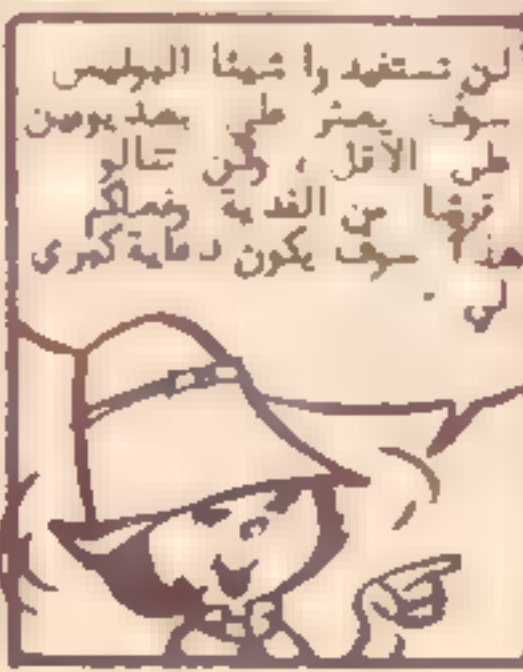 لن تستفيدوا شيئا البوليس
سوف يعثر علي بعد يومين
علي الأقل ، ولن تنالو
قرشا من الفدية وفعلكم
هذا سوف يكون دعاية كبرى
لي .